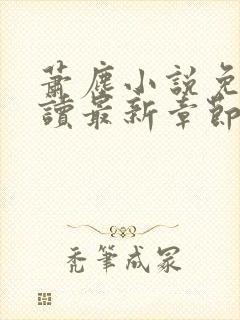 蕭塵小說免
讀最新章節
禿筆成冢